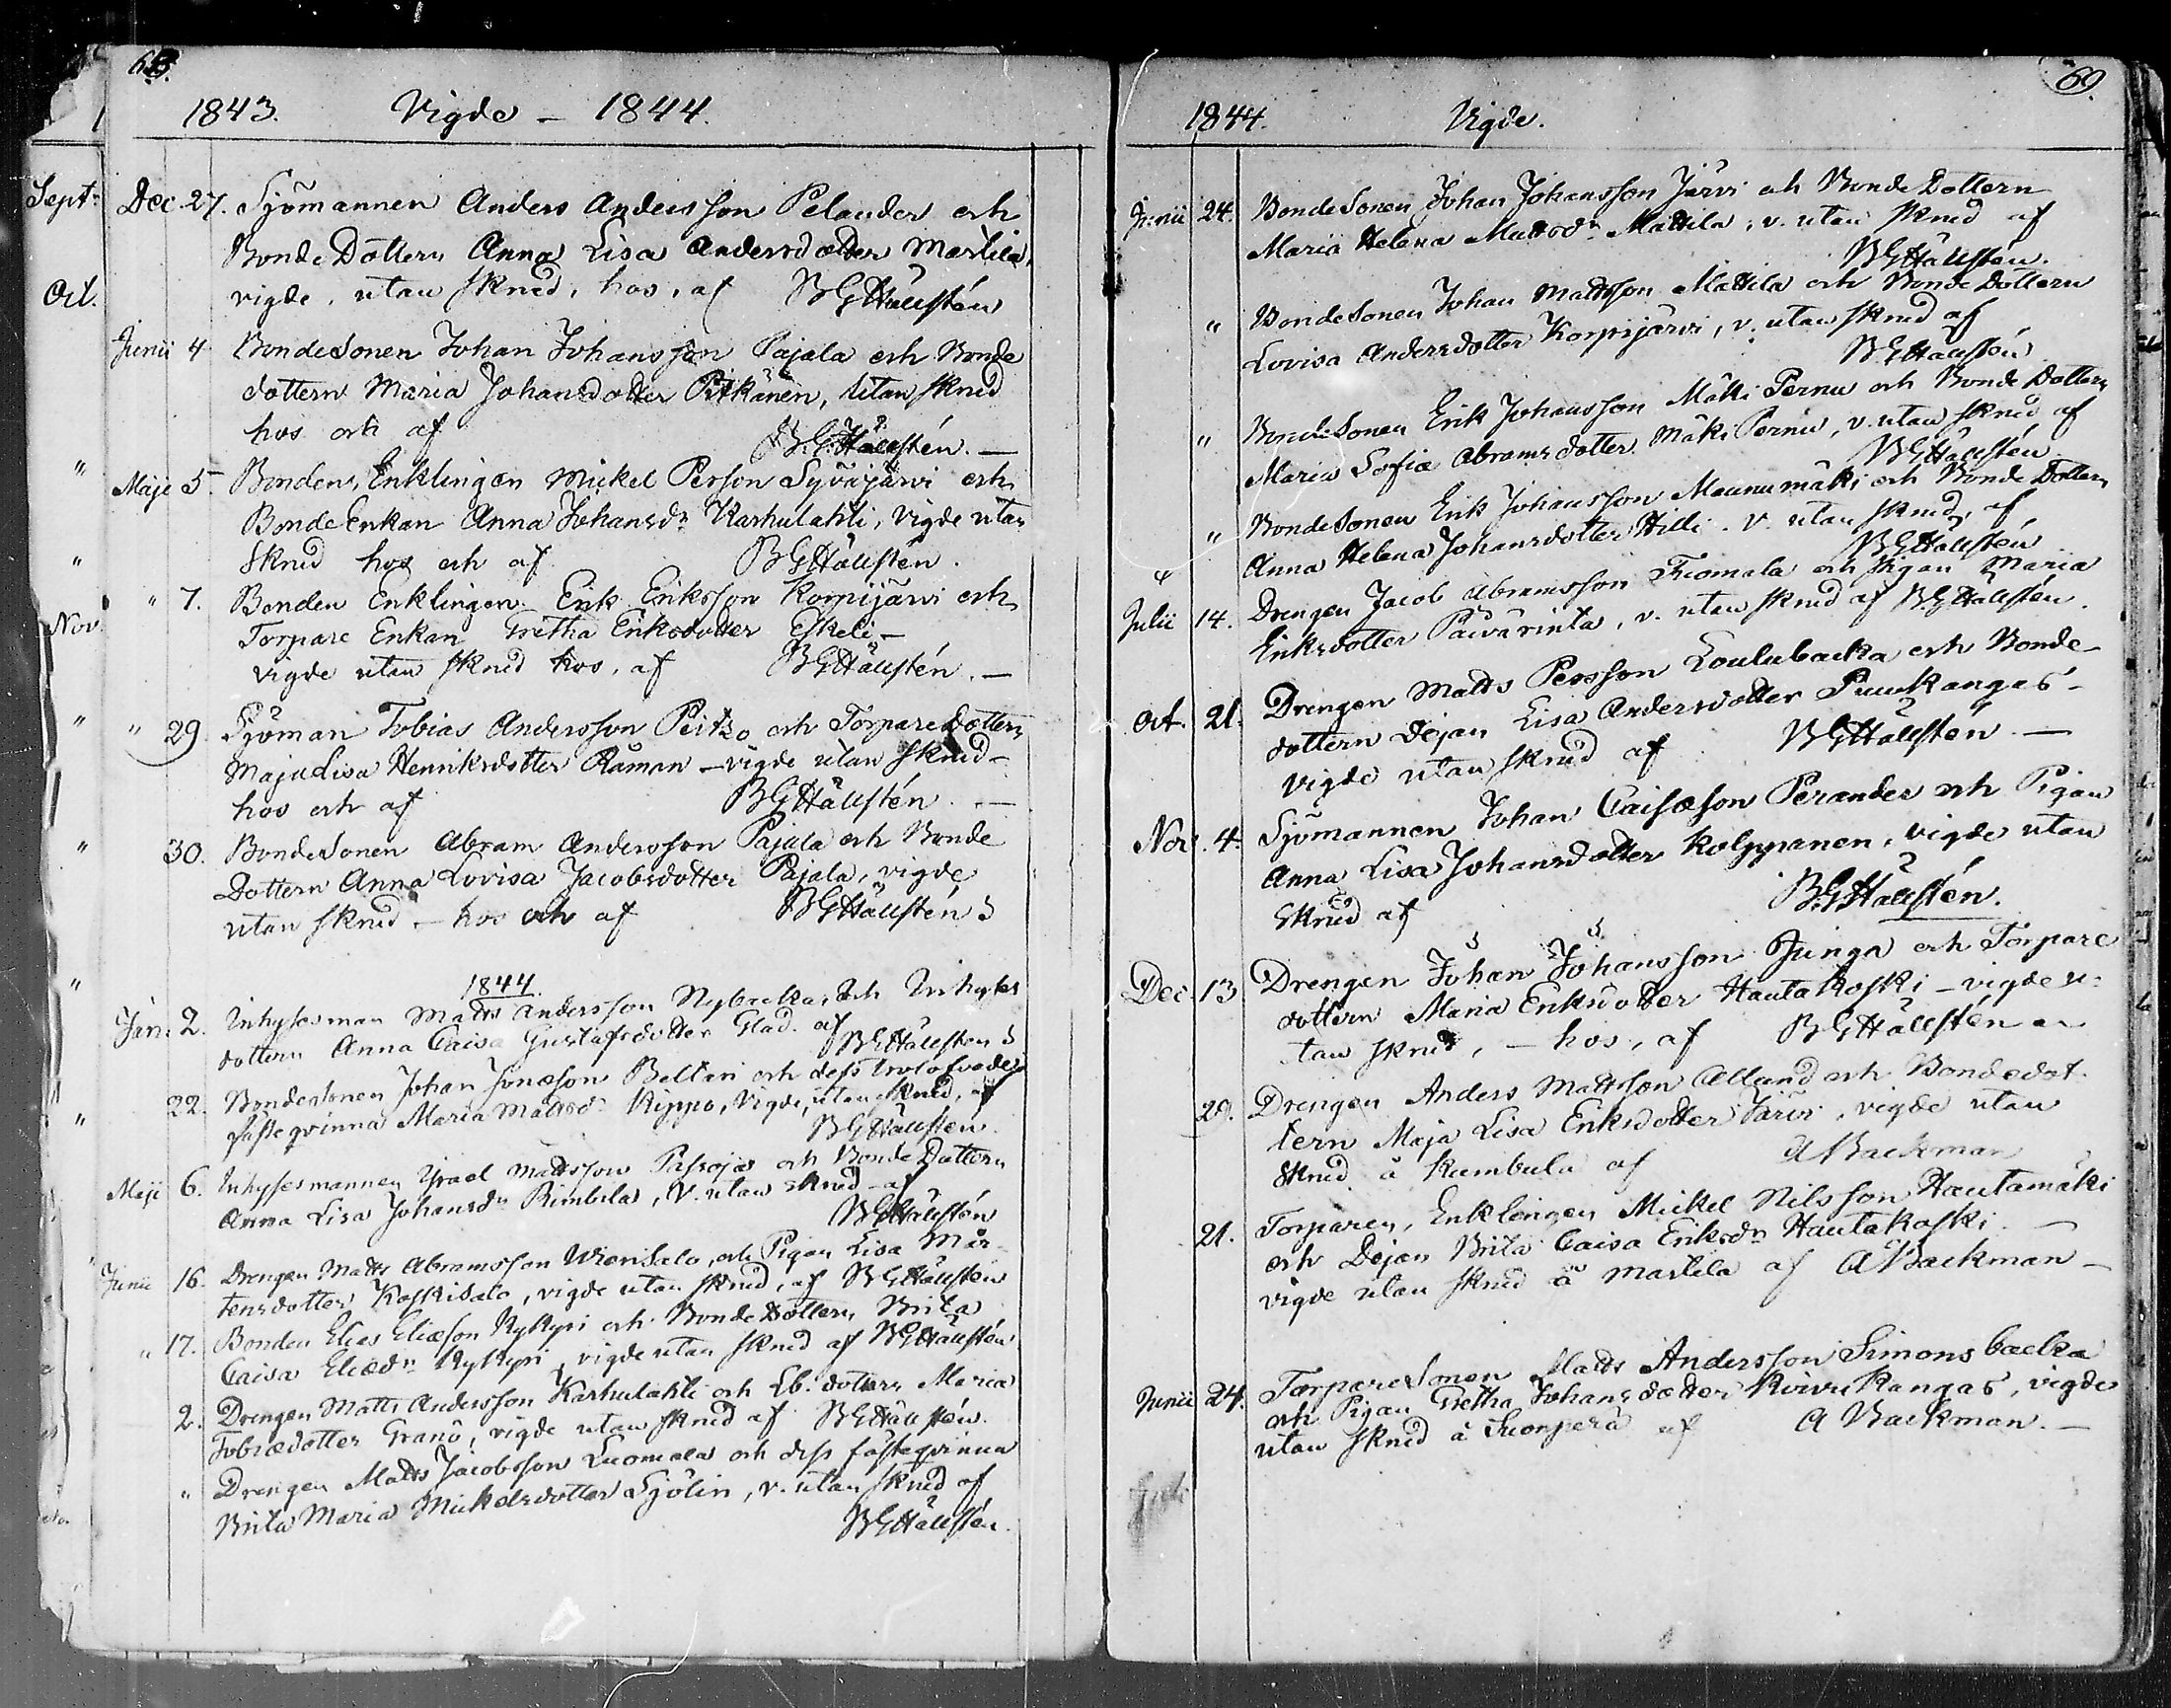 68.
1843. Vigde – 1844.
Dec. 27. Sjömannen Anders Andersson Pelander och
Bonde Dottern Anna Lisa Andersdotter Martila,
vigde, utan skrud, hos, af BGHällstén
Junii 4 BondeSonen Johan Johansson Pajala och Bonde
dottern Maria Johansdotter Pitkänen, utan skrud
hos och af B.G.Hällstén. —
Maji 5. Bonden, Enklingen Mickel Persson Syväjärvi och
BondeEnkan Anna Johansdr Karhulahti, vigde utan
skrud hos och af BGHällstén.
" 7. Bonden Enklingen Erik Eriksson Korpijärvi och
Torpare Enkan Gretha Eriksdotter Eskeli –
vigde utan skrud hos, af BGHällstén. —
" 29. Sjöman Tobias Andersson Peitzo och Torpare Dottern
Maja Lisa Henriksdotter Råman – vigde utan skrud –
hos och af BGHällstén. —
30. BondeSonen Abram Andersson Pajala och Bonde
Dottern Anna Lovisa Jacobsdotter Pajala, vigde
utan skrud. – hos och af BGHällstén
1844.
Jan. 2. Inhysesman Matts Andersson Nybacka, och Inhyses
dottern Anna Caisa Gustafsdotter Glad. af BGHällstén
22. BondeSonen Johan Jonasson Beltari och dess trolofvade
fästeqvinna Maria Mattsdr Kippo, vigde, utan skrud, af
BGHällstén.
Maji 6. Inhysesmannen Israel Mattsson Passoja och Bonde Dottern
Anna Lisa Johansdr Rimbula, v. utan skrud – af
BGHällstén
Junii 16. Drengen Matts Abramsson Wiensalo, och Pigan Lisa Mår-
tensdotter Koskisalo, vigde utan skrud, af BGHällstén
" 17. Bonden Elias Eliasson Kykyri och Bonde Dottern Brita
Caisa Eliædr Kykyri, vigde utan skrud af BGHällstén
2. Drengen Matts Andersson Karhulahti och Lb. dottern Maria
Tobiædotter Granö, vigde utan skrud af BGHällstén.
" Drengen Matts Jacobsson Luomala och dess fästeqvinna
Brita Maria Mickelsdotter Sjölin, v. utan skrud af
BGHällstén.
69.
1844. Vigde.
Junii 24. BondeSonen Johan Johansson Järvi och Bonde Dottern
Maria Helena Mattsdr Mattila, v. utan skrud af
BGHällstén.
" BondeSonen Johan Mattsson Mattila och Bonde Dottern
Lovisa Andersdotter Korpijärvi, v. utan skrud af
BGHällstén
" BondeSonen Erik Johansson Mäki Pernu och Bonde Dottern
Maria Sofia Abramsdotter Mäki Pernu, v. utan skrud af
BGHällstén
" BondeSonen Erik Johansson Maunumäki och Bonde Dottern
Anna Helena Johansdotter Hilli. v. utan skrud, af
BGHällstén
Julii 14. Drengen Jacob Abramsson Tiomala och Pigan Maria
Eriksdotter Päivärinta, v. utan skrud af BGHällstén.
Oct. 21. Drengen Matts Persson Loulubacka och Bonde-
dottern Dejan Lisa Andersdotter Puukangas –
vigde utan skrud af BGHällstén —
Nov. 4. Sjömannen Johan Caisæson Perander och Pigan
Anna Lisa Johansdotter Kolppanen, vigde utan
skrud af BGHällstén.
Dec. 13 Drengen Johan Johansson Junga och Torpare
dottern Maria Eriksdotter Hautakoski – vigde u-
tan skrud, – hos, af BGHällstén
29. Drengen Anders Mattsson Ahlund och Bondedot-
tern Maja Lisa Eriksdotter Järvi, vigde utan
skrud å Kumbula af A Backman
21. Torparen, Enklingen Mickel Nilsson Hautamäki
och Dejan Brita Caisa Eriksdr Hautakoski. —
vigde utan skrud å Martila af A Backman —
Junii 24. TorpareSonen Matts Andersson Simonsbacka
och Pigan Gretha Johansdotter Koivukangas, vigde
utan skrud å Suonperä af A Backman. —
Sept.
Oct.
Nov.